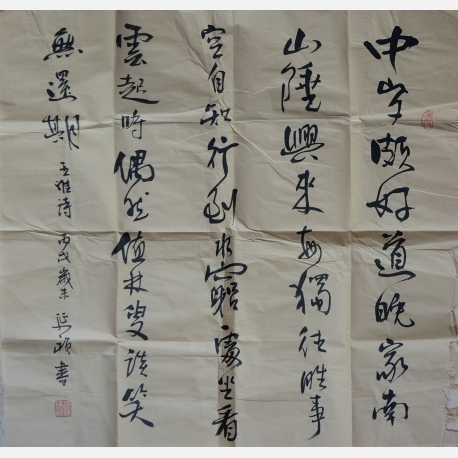 中岁頗好道晚家南
山陲興来每獨往胜事
空自知行到水窮處坐看
雲起時偶然值林叟談笑
無還期 王維詩 丙戌歲末 書